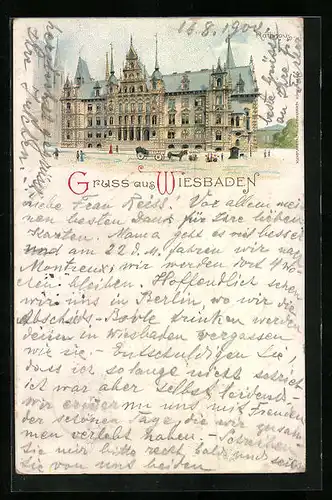 16.8.1902
Rathaus
Gruss aus Wiesbaden
Liebe Frau Reiss! Vor allem mei-
nen besten Dank für Ihre lieben
Karten. Mama geht es viel besser
und am 22 d. M. fahren wir nach
Montreux, wir werden dort 4 Wo-
chen bleiben. Hoffentlich sehen
wir uns in Berlin, wo wir die
Abschieds-Bowle trinken werden
denn in Wiesbaden vergassen
wir sie. - Entschuldigen Sie,
dass ich so lange nicht schrieb
ich war aber selbst leidend.
wir erinnern uns mit Freuden
der schönen Tage, die wir zusam
men verlebt haben. - Schreiben
Sie mir bitte recht bald und seien
Sie von uns beiden
herzlichst